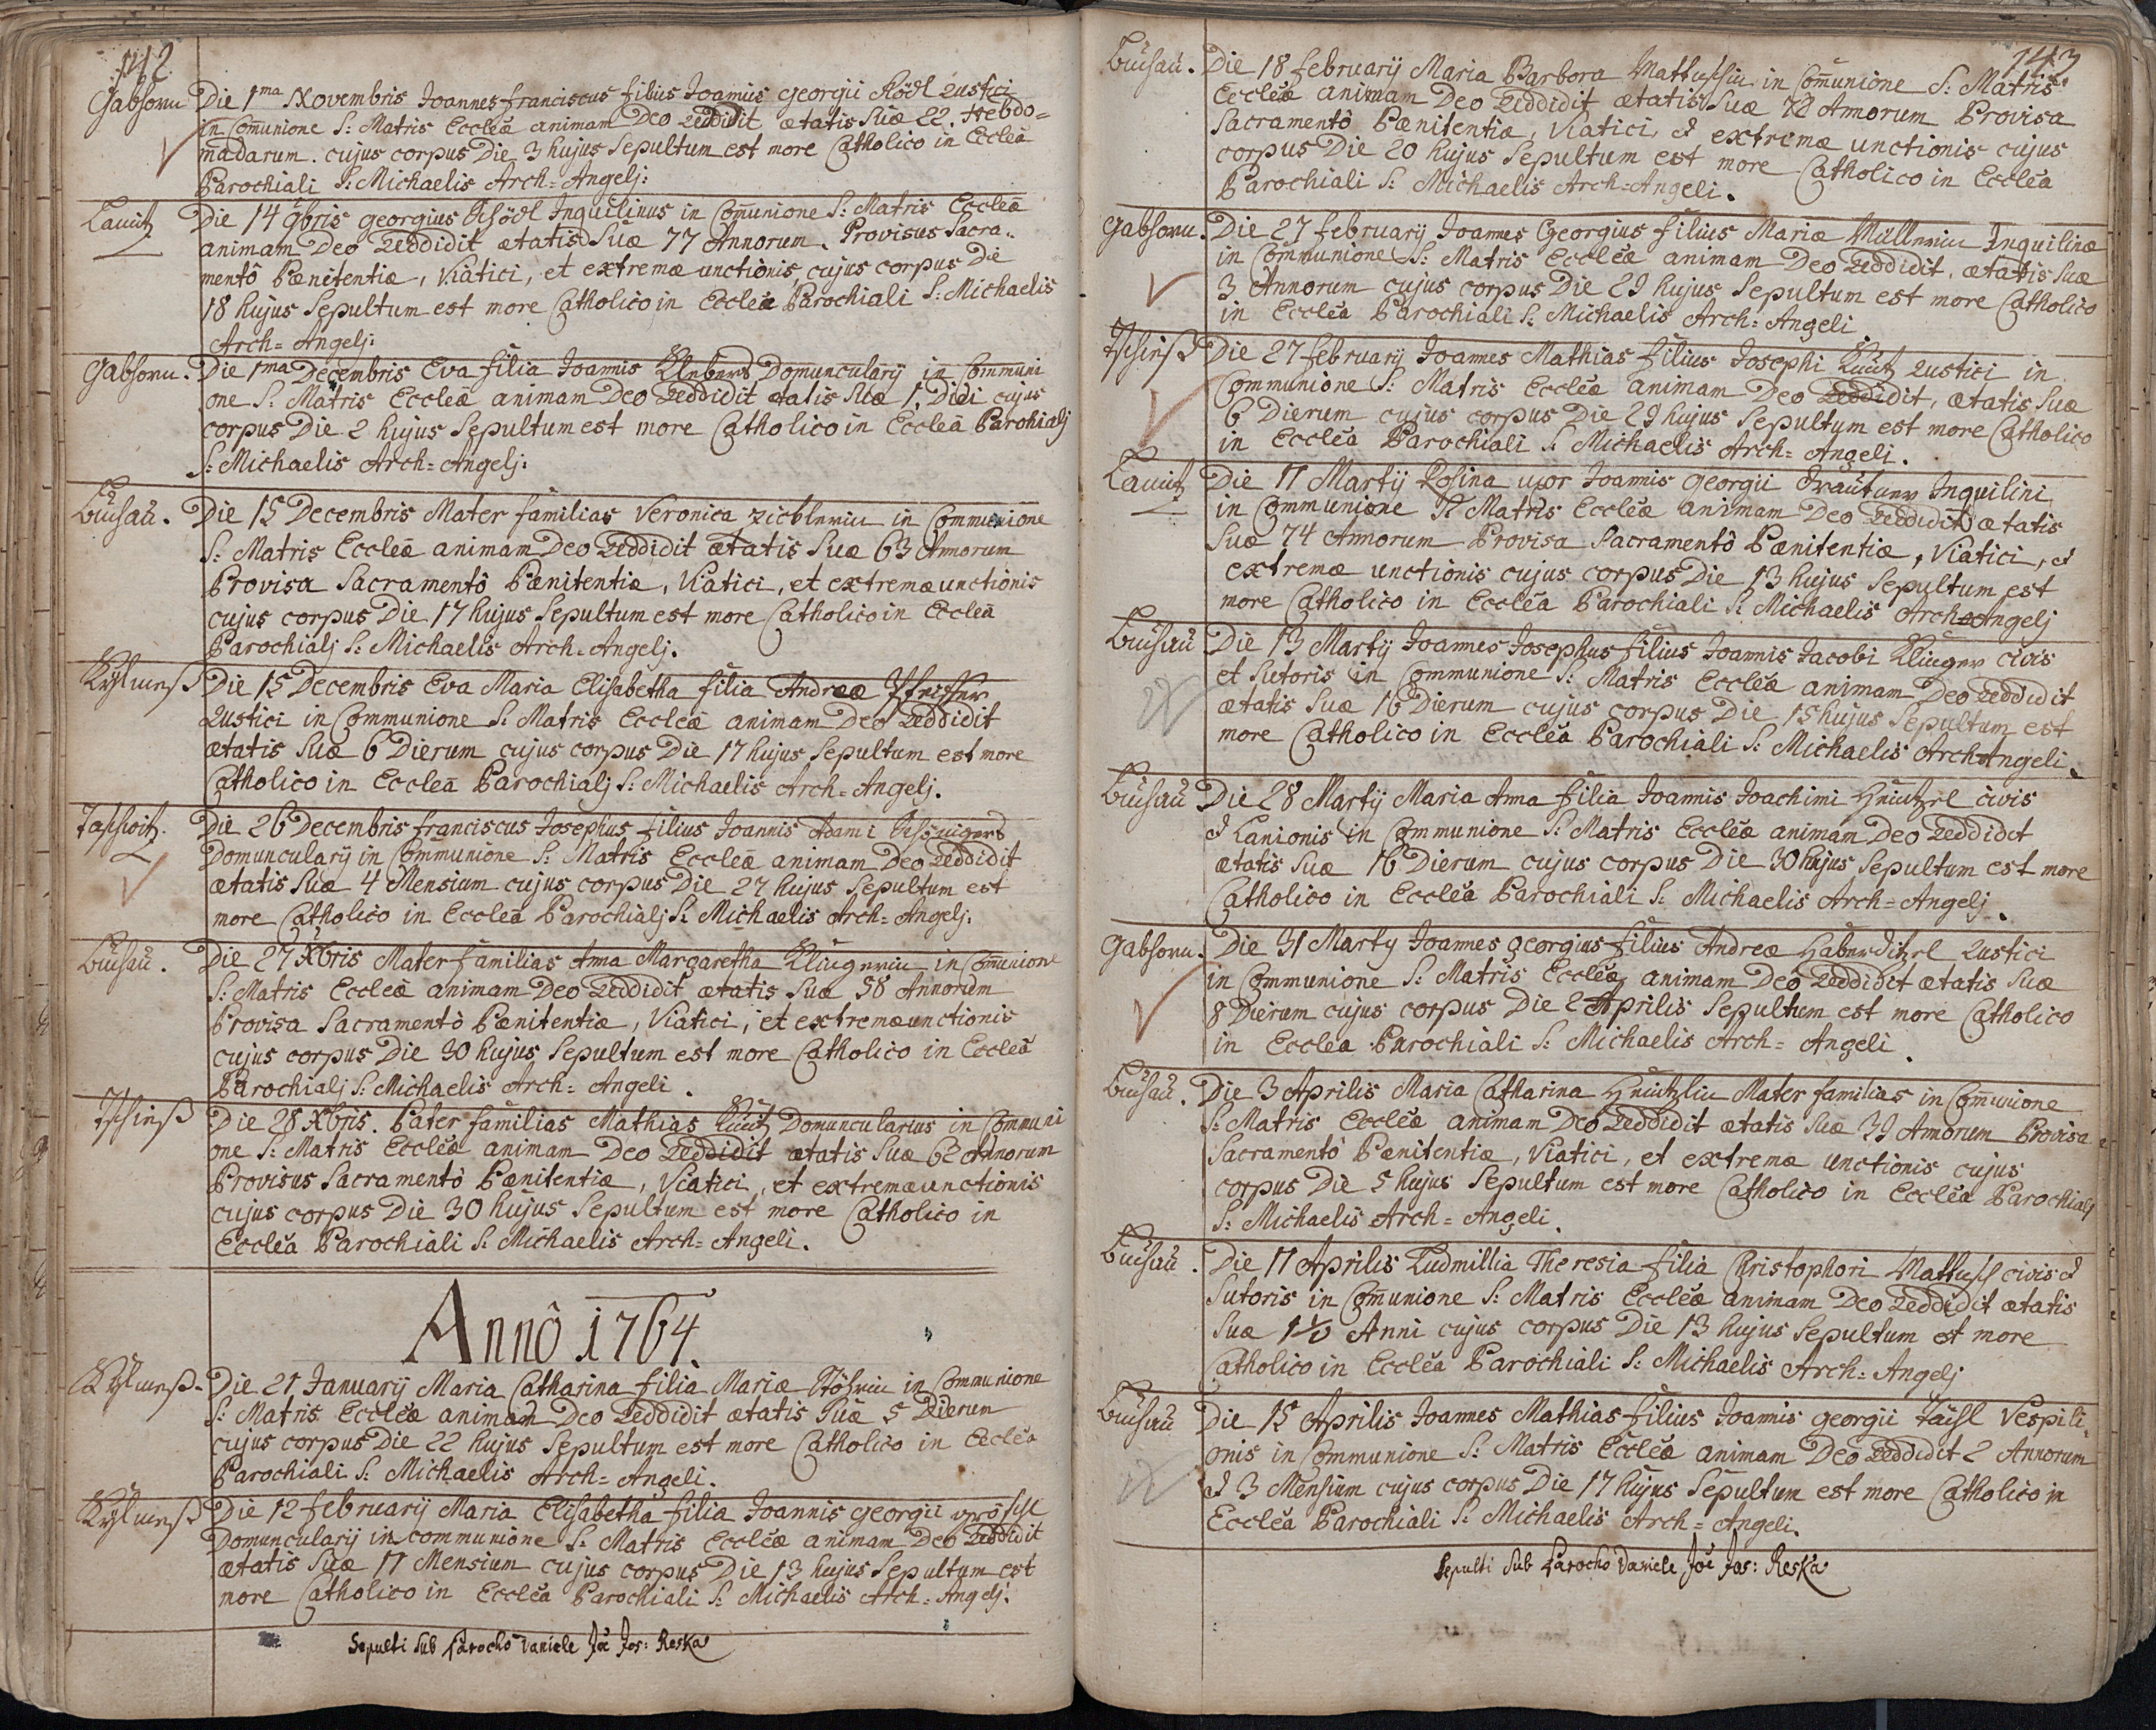 142
Gabhorn Die 1ma Novembris Joannes franciscus filius Joannis georgii Rustici
in Com̄unione S: Matris Eccleā animam Deo Reddidit ætatis Suæ 22. Hebdo=
madarum. cujus corpus Die 3 hujus Sepultum est more Catholico in Eccleā
Parochiali S: Michaelis Arch=Angelj:
Die 14 9bris georgius Inquilinus in Com̄unione S: Matris Eccleā
animam Deo Reddidit ætatis Suæ 77 Annorum. Provisus Sacra..
mentô Pœnitentiæ, Viatici, et extremæ unctionis, cujus corpus Die
18 hujus Sepultum est more Catholico in Eccleā Parochiali S: Michaelis
Arch=Angelj:
Gabhorn. Die 1ma Decembris Eva filia Joannis Domuncularij in Communi
one S: Matris Eccleā animam Deo Reddidit ætatis Suæ 1. Diei cujus
corpus Die 2 hujus Sepultum est more Catholico in Eccleā Parohialj
S: Michaelis Arch=Angelj:
Buchau. Die 15 Decembris Mater familias Veronica in Communione
S: Matris Eccleā animam Deo Reddidit ætatis Suæ 63 Annorum
Provisa Sacramentô Pœnitentiæ, Viatici, et extremæ unctionis
cujus corpus Die 17 hujus Sepultum est more Catholico in Eccleā
Parochialj S: Michaelis Arch=Angelj.
Die 15 Decembris Eva Maria Elisabetha filia Andreæ
Rustici in Communione S: Matris Eccleā animam Deo Reddidit
ætatis Suæ 6 Dierum cujus corpus Die 17 hujus Sepultum est more
Catholico in Eccleā Parochialj S: Michaelis Arch=Angelj.
Die 26 Decembris franciscus Josephus filius Joannis Adami
Domuncularij in Communione S: Matris Eccleā animam Deo Reddidit
ætatis Suæ 4 Mensium cujus corpus Die 27 hujus Sepultum est
more Catholico in Eccleā Parochialj S: Michaelis Arch=Angelj.
Buchau. Die 27 Xbris Mater familias Anna Margaretha Klingerin in Com̄unione
S: Matris Eccleā animam Deo Reddidit ætatis Suæ 58 Annorum
Provisa Sacramentô Pœnitentiæ, Viatici, et extremæ unctionis
cujus corpus Die 30 hujus Sepultum est more Catholico in Eccleā
Parochialj S: Michaelis Arch=Angeli.
Die 28 Xbris. Pater familias Mathias Domuncularius in Communi
one S: Matris Eccleā animam Deo Reddidit ætatis Suæ 62 Annorum
Provisus Sacramentô Pœnitentiæ, Viatici, et extremæ unctionis
cujus corpus Die 30 hujus Sepultum est more Catholico in
Eccleā Parochiali S: Michaelis Arch=Angeli.
Annô 1764.
Die 21 Januarij Maria Catharina filia Mariæ in Communione
S: Matris Eccleā animam Deo Reddidit ætatis Suæ 5 Dierum
cujus corpus Die 22 hujus Sepultum est more Catholico in Eccleā
Parochiali S: Michaelis Arch=Angeli.
Die 12 february Maria Elisabetha filia Joannis georgii
Domuncularij in communione S: Matris Eccleā animam Deo Reddidit
ætatis Suæ 11 Mensium cujus corpus Die 13 hujus Sepultum est
more Catholico in Eccleā Parochiali S: Michaelis Arch=Angelj.
Sepulti Sub Parocho Daniele Jos: Reska
143
Buchau. Die 18 february Maria Barbora in Com̄unione S: Matris
Eccleæ animam Deo Reddidit ætatis Suæ 72 Annorum Provisa
Sacramentô Pœnitentiæ, Viatici, et extremæ unctionis cujus
corpus Die 20 hujus Sepultum est more Catholico in Eccleā
Parochiali S: Michaelis Arch=Angeli.
Gabhorn. Die 27 february Joannes Georgius filius Mariæ Müllerin Inquilinæ
in Communione S: Matris Eccleæ animam Deo Reddidit, ætatis Suæ
3 Annorum cujus corpus Die 29 hujus Sepultum est more Catholico
in Eccleā Parochiali S: Michaelis Arch=Angeli
Die 27 february Joannes Mathias filius Josephi Rustici in
Communione S: Matris Eccleæ animam Deo Reddidit, ætatis Suæ
6 Dierum cujus corpus Die 29 hujus Sepultum est more Catholico
in Eccleā Parochiali S: Michaelis Arch=Angeli.
Die 11 Martij Rosina uxor Joannis georgii Inquilini
in Communione S: Matris Eccleæ animam Deo Reddidit ætatis
Suæ 74 Annorum Provisa Sacramentô Pœnitentiæ, Viatici, et
extremæ unctionis cujus corpus Die 13 hujus Sepultum est
more Catholico in Eccleā Parochiali S: Michaelis Arch=Angelj
Buchau Die 13 Martij Joannes Josephus filius Joannis Jacobi Klinger civis
et Sutoris in Communione S: Matris Eccleæ animam Deo Reddidit
ætatis Suæ 16 Dierum cujus corpus Die 15 hujus Sepultum est
more Catholico in Eccleā Parochiali S: Michaelis Arch=Angeli.
Buchau Die 28 Martij Maria Anna filia Joannis Joachimi civis
et Lanionis in Communione S: Matris Eccleæ animam Deo Reddidit
ætatis Suæ 16 Dierum cujus corpus Die 30 hujus Sepultum est more
Catholico in Eccleā Parochiali S: Michaelis Arch=Angelj.
Gabhorn. Die 31 Marty Joannes georgius filius Andreæ Haberditzl Rustici
in Communione S: Matris Eccleæ animam Deo Reddidit ætatis Suæ
8 Dierum cujus corpus Die 2 Aprilis Sepultum est more Catholico
in Eccleā Parochiali S: Michaelis Arch=Angeli.
Buchau. Die 3 Aprilis Maria Catharina Mater familias in Com̄unione
S: Matris Eccleæ animam Deo Reddidit ætatis Suæ 39 Annorum Provisa
Sacramentô Pœnitentiæ, Viatici, et extremæ unctionis cujus
corpus Die 5 hujus Sepultum est more Catholico in Eccleā Parochialj
S: Michaelis Arch=Angeli.
Buchau. Die 11 Aprilis Ludmillia Theresia filia Christophori Mattusch civis et
Sutoris in Com̄unione S: Matris Eccleæ animam Deo Reddidit ætatis
Suæ Anni cujus corpus Die 13 hujus Sepultum est more
Catholico in Eccleā Parochiali S: Michaelis Arch=Angelj
Buchau Die 15 Aprilis Joannes Mathias filius Joannis georgii Vespili
onis in Communione S: Matris Eccleæ animam Deo Reddidit 2 Annorum
et 3 Mensium cujus corpus Die 17 hujus Sepultum est more Catholico in
Eccleā Parochiali S: Michaelis Arch=Angeli.
Sepulti Sub Parocho Daniele Jos: Reska